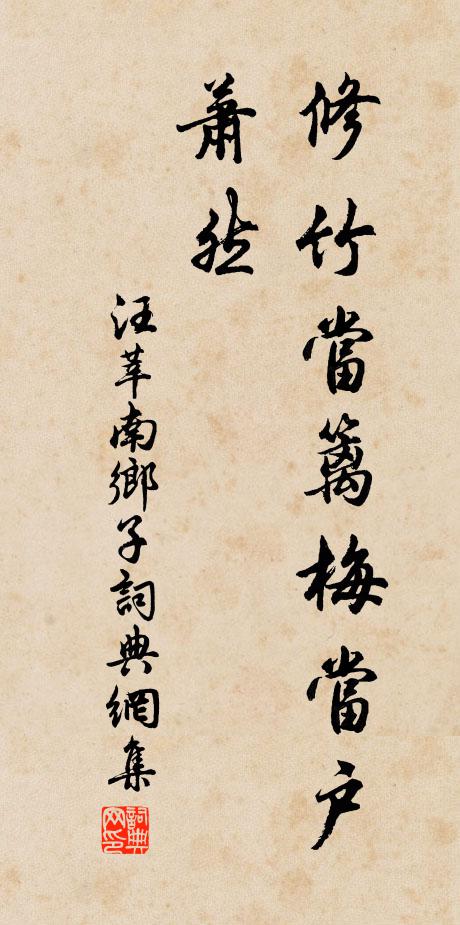 修竹當籬梅當户
蕭然
汪莘南鄉子詞典網集
詞典网印